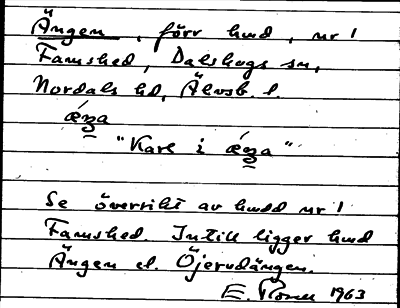 Ängen, förr hmd, nr 1
Famshed, Dalskogs sn,
Nordals hd, Älvsb. l.
ǽʒa
"Karl i ǽʒa"
Se översikt av hmdd nr 1
Famshed. Intill ligger hmd
Ängen el. Öjervdängen.
E. 1963